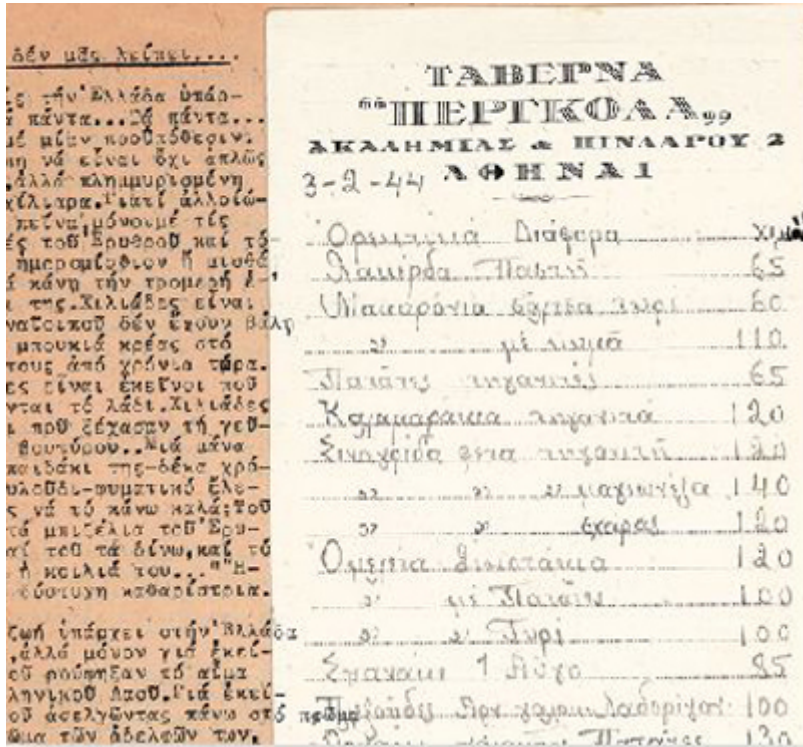 δέν μᾶς λείπει....
ς τήν Ἑλλάδα ὑπάρ-
ά πάντα...Τά πάντα...
μέ μίαν προϋπόθεσιν:
πη νά εἶναι ὄχι ἁπλῶς
ἀλλά πλημμυρισμένη
χίλιαρα.Γιατί ἀλλοιώ-
πεῖνα μόνο μέ τίς
ές τοῦ Ἐρυθροῦ καί τό
ἡμερομίσθιον ἤ μισθό
ά κάνη τήν τρομερή ἐ-
ι της.Χιλιάδες εἶναι
νατοικοῦ δέν ἔχουν βάλη
μπουκιά κρέας στό
τους ἀπό χρόνια τώρα.
ες εἶναι ἐκεῖνοι πού
νται τό λάδι.Χιλιάδες
ι πού ξέχασαν τή γεῦ-
βουτύρου..Μιά μάνα
παιδάκι της-δέκα χρό-
υλοῦδι-φυματικό ἔλε-
ς νά τό κάνω καλά;Τοῦ
τά μπιζέλια τοῦ Ἐρυ-
αί τοῦ τά δίνω,καί τό
ἡ κοιλιά του..."Ἡ-
δύστυχη καθαρίστρια.
ζωή ὑπάρχει στήν Ἑλλάδα
,ἀλλά μόνον γιά ἐκεί-
οῦ ρούφηξαν τό αἷμα
ληνικοῦ Λαοῦ.Γιά ἐκεί-
οῦ ἀσελγῶντας πάνω στό πτῶμα
ῶμα τῶν ἀδελφῶν των,
ΤΑΒΕΡΝΑ
“ΠΕΡΓΚΟΛΑ„
ΑΚΑΔΗΜΙΑΣ & ΠΙΝΔΑΡΟΥ 2
ΑΘΗΝΑΙ
3-2-44
Ὀρεκτικά Διάφορα
Λακέρδα Παστή 65
Μακαρόνια σάλτσα τυρί 60
" μέ κυμά 110
Πατάτες τηγανιτές 65
Καλαμαράκια τηγανιτά 120
Συναγρίδα φέτα τηγανιτή 120
" " " μαγιωνέζα 140
" " σχάρας 120
Ὀμελέτα Συκωτάκια 120
" μέ Πατάτες 100
" " Τυρί 100
Σπανάκι 1 Αὐγό 85
100
130